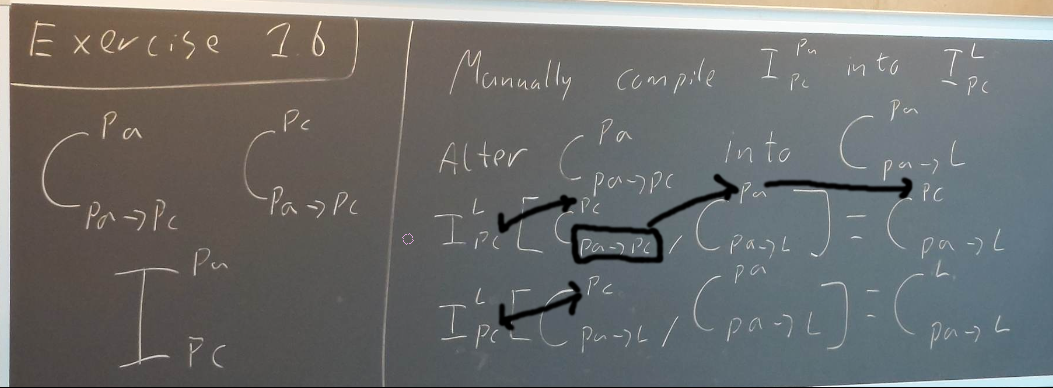 Exercise 1.6
C Pa Pa→Pc
C Pc Pa→Pc
I Pa Pc
Manually compile I Pa Pc into I L Pc
Alter C Pa Pa→Pc into C Pa Pa→L
I L Pc [ C Pc Pa→Pc , C Pa Pa→L ] = C Pc Pa→L
I L Pc [ C Pc Pa→L , C Pa Pa→L ] = C L Pa→L